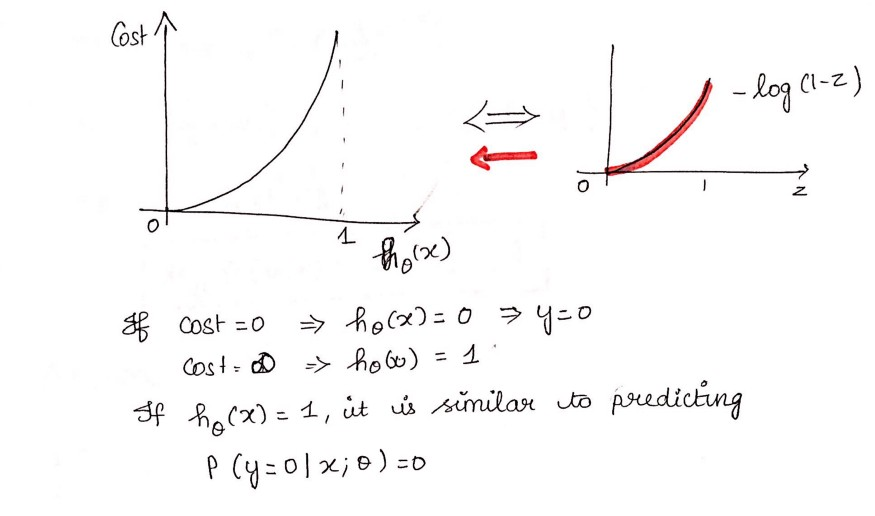 Cost
0
1
hθ(x)
⟺
←
- log (1-z)
0
1
z
If cost = 0 ⇒ hθ(x) = 0 ⇒ y = 0
cost = ∞ ⇒ hθ(x) = 1
If hθ(x) = 1, it is similar to predicting
P (y = 0 | x; θ) = 0